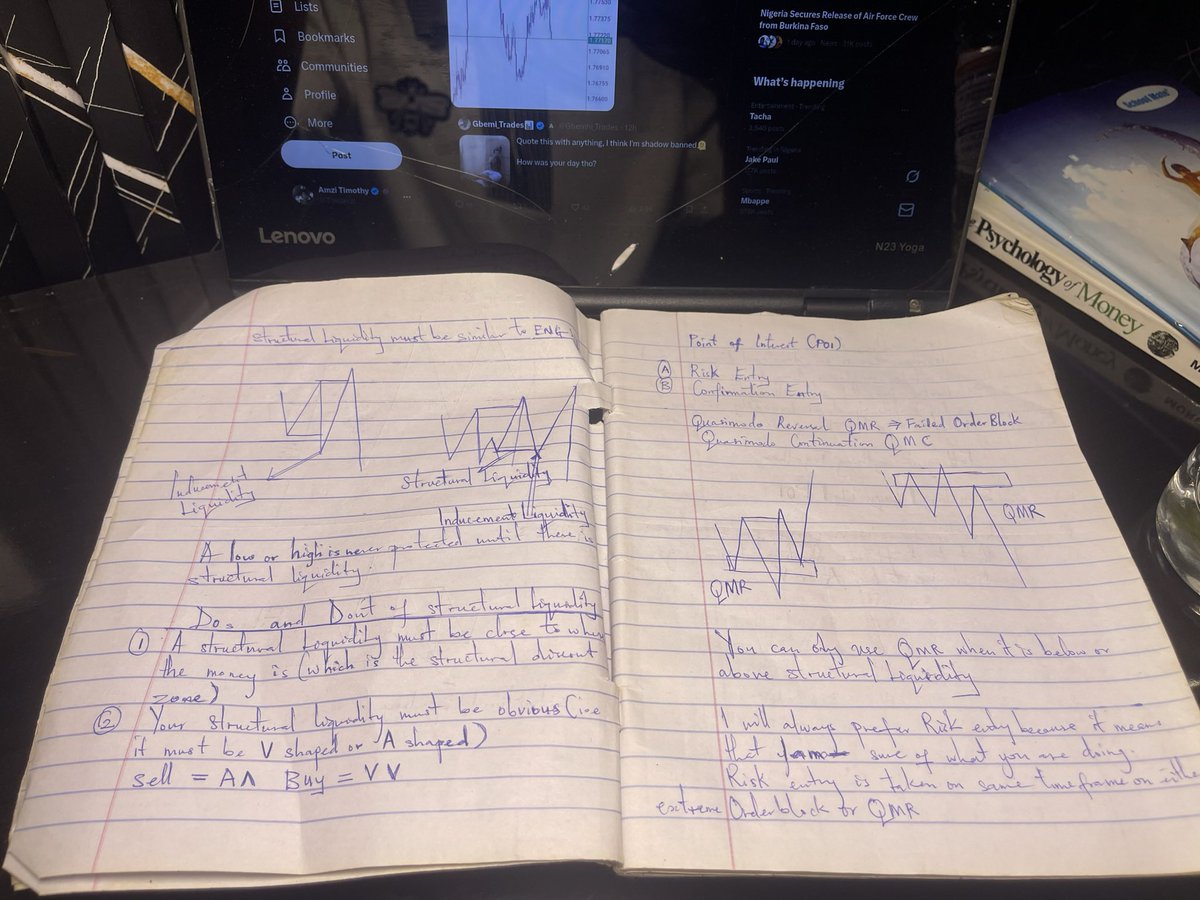 Lists
Bookmarks
Communities
Profile
More
Post
Amzi Timothy
1.77375
1.77220
1.77065
1.76910
1.76755
1.76600
Gbemi_Trades
Quote this with anything, I think I'm shadow banned
How was your day tho?
Nigeria Secures Release of Air Force Crew
from Burkina Faso
1 day ago · News · 31K posts
What's happening
Entertainment · Trending
Tacha
Trending in Nigeria
Jake Paul
Sports · Trending
Mbappe
Lenovo
N23 Yoga
Psychology of Money
Structural Liquidity must be similar to ENG
Inducement
Liquidity
Structural Liquidity
Inducement Liquidity
A low or high is never protected until there is
structural liquidity.
Dos and Don't of structural Liquidity
1 A structural Loquidity must be close to wher
the money is (which is the structural discout
zone)
2 Your structural liquidity must be obvious (i.e
it must be V shaped or A shaped)
Sell = AΛ Buy = VV
Point of Interest (POI)
A Risk Entry
B Confirmation Entry
Quasimodo Reversal QMR ⇒ Failed OrderBlock
Quasimodo Continuation QMC
QMR
QMR
You can only use QMR when it is below or
above structural Liquidity
I will always prefer Risk entry because it means
that sure of what you are doing.
Risk entry is taken on same timeframe on either
extreme Orderblock or QMR